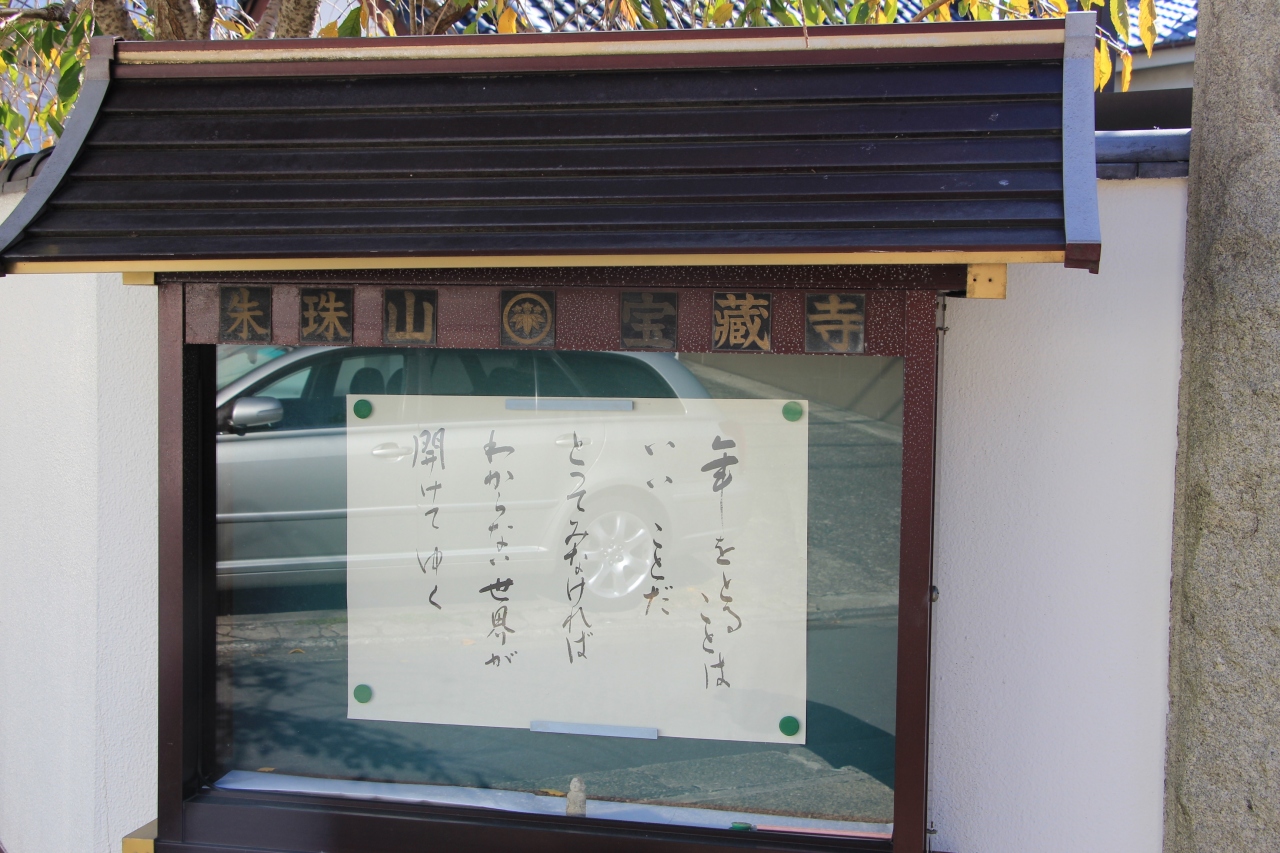 朱珠山 宝蔵寺
年をとることは
いいことだ
とってみなければ
わからない世界が
開けてゆく